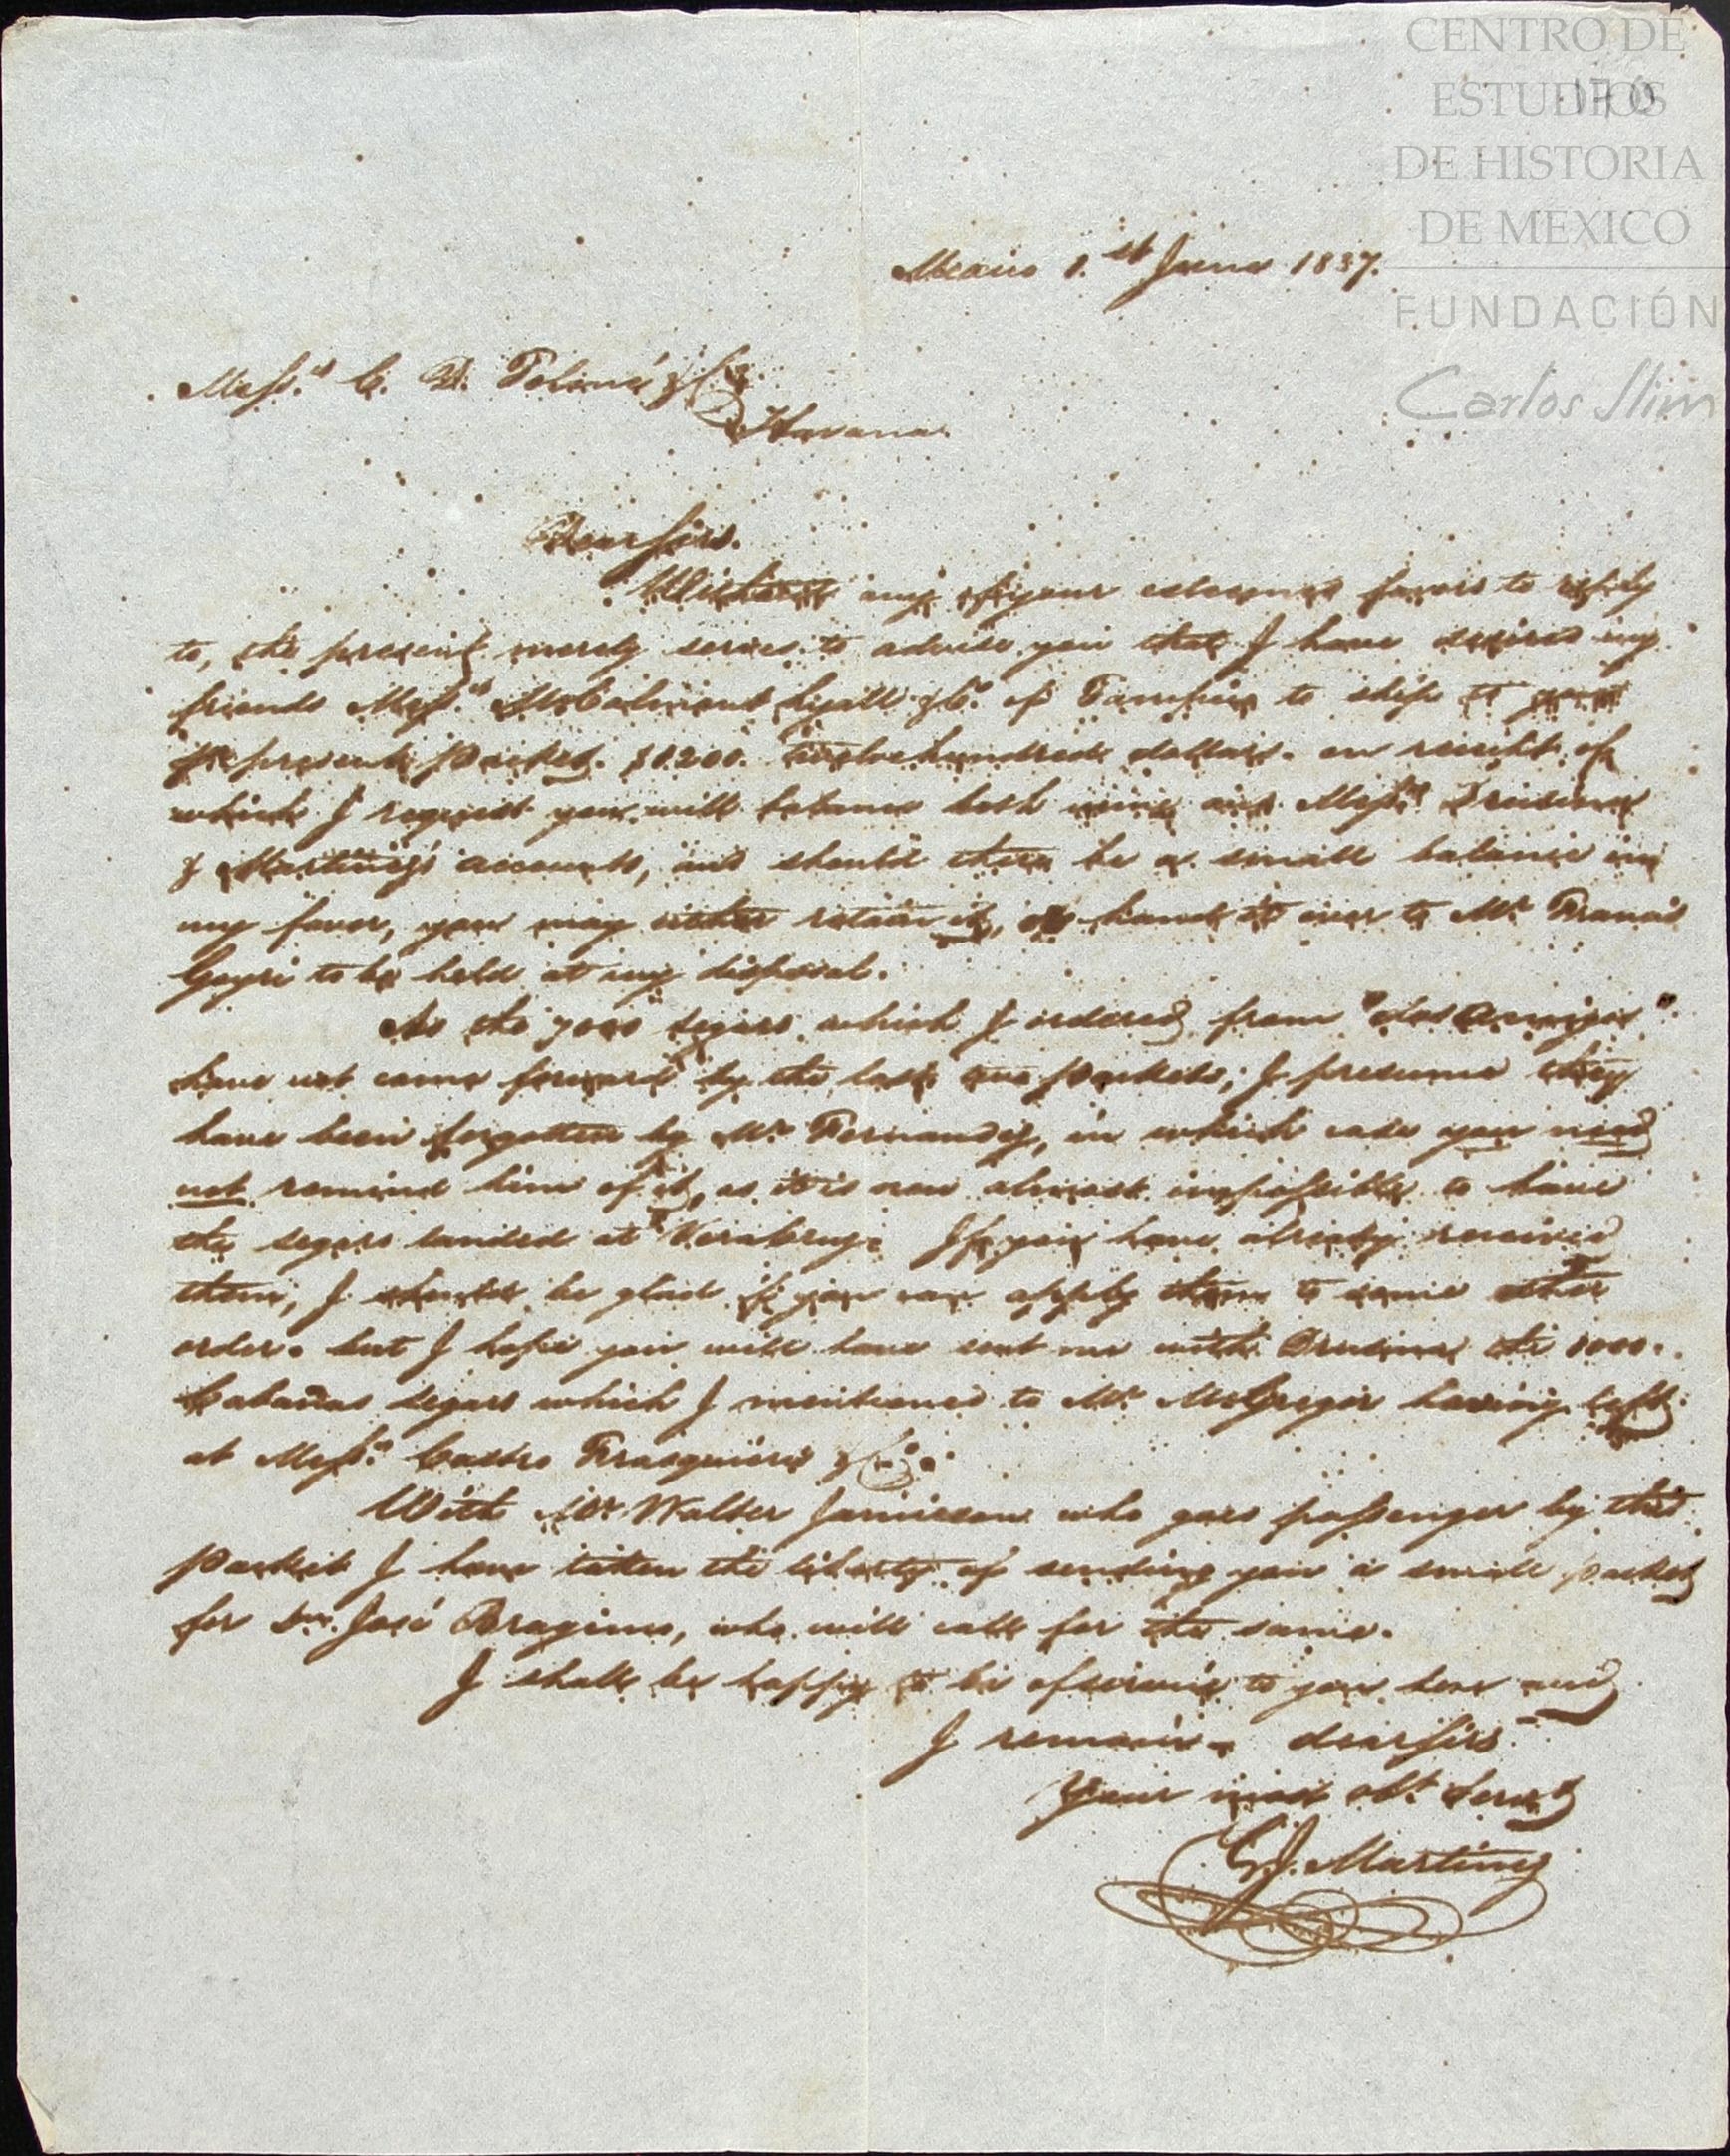 CENTRO DE
ESTUDIOS
DE HISTORIA
DE MEXICO
FUNDACIÓN
Carlos Slim
170
Mexico 1.st June 1837.
Mess.rs C. D. Tolmé & Co
Havana.
Dear Sirs.
Without any of your esteemed favors to reply
to, the present merely serves to advise you that I have desired my
friends Mess.rs McCalmont Lyall & Co. of Tampico to ship to you
pr present packet. $1200. twelve hundred dollars. on receipt of
which I request you will balance both mine and Mess.rs Drusina
& Martinez's accounts, and should there be a small balance in
my favor, you may either retain it, or hand it over to Mr. Francis
Goyri to be held at my disposal.
As the 7000 segars which I ordered from "dos Amigos"
have not come forward by the last two packets; I presume they
have been forgotten by Mr. Fernandez, in which case you need
not remind him of it, as it is now almost impossible to have
the segars landed at VeraCruz. If you have already received
them, I should be glad if you can apply them to some other
order. but I hope you will have sent me with Drusina the 1000.
Cabañas segars which I mentioned to Mr. McGregor having left
at Mess.rs Castro Frasquieri & Co.
With Mr. Walter Jamieson who goes passenger by this
packet I have taken the liberty of sending you a small packet
for Dn. José Aragines, who will call for the same.
I shall be happy to be of service to you here and
I remain. dear Sirs
Your most obt. Servt
G. J. Martinez